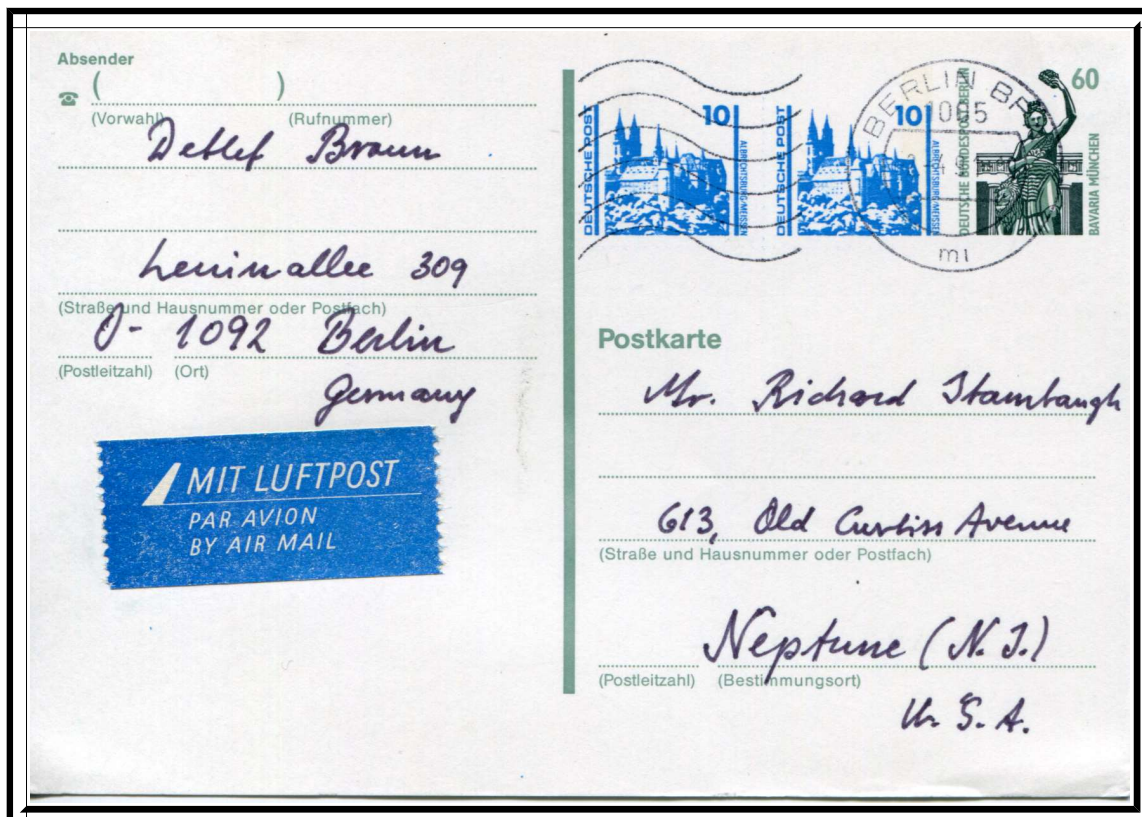 Absender
☎ ( )
(Vorwahl) (Rufnummer)
Detlef Braun
Leninallee 309
(Straße und Hausnummer oder Postfach)
O- 1092 Berlin
(Postleitzahl) (Ort)
Germany
MIT LUFTPOST
PAR AVION
BY AIR MAIL
DEUTSCHE POST
10
ALBRECHTSBURG MEISSEN
DEUTSCHE POST
10
ALBRECHTSBURG MEISSEN
DEUTSCHE BUNDESPOST BERLIN
60
BAVARIA MÜNCHEN
BERLIN
1085
mi
Postkarte
Mr. Richard Stambaugh
613, Old Curtiss Avenue
(Straße und Hausnummer oder Postfach)
Neptune (N. J.)
(Postleitzahl) (Bestimmungsort)
U. S. A.